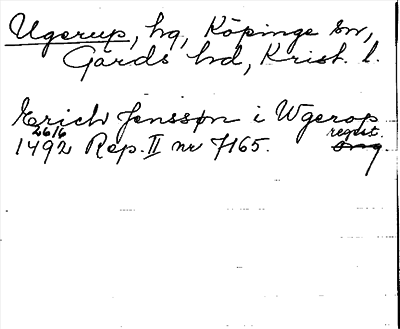 Ugerup, hg, Köpinge sn,
Gärds hd, Krist. l.
Erich Jenssøn i Wgerop
26/6 regest.
1492 Rep. II nr 7165. org